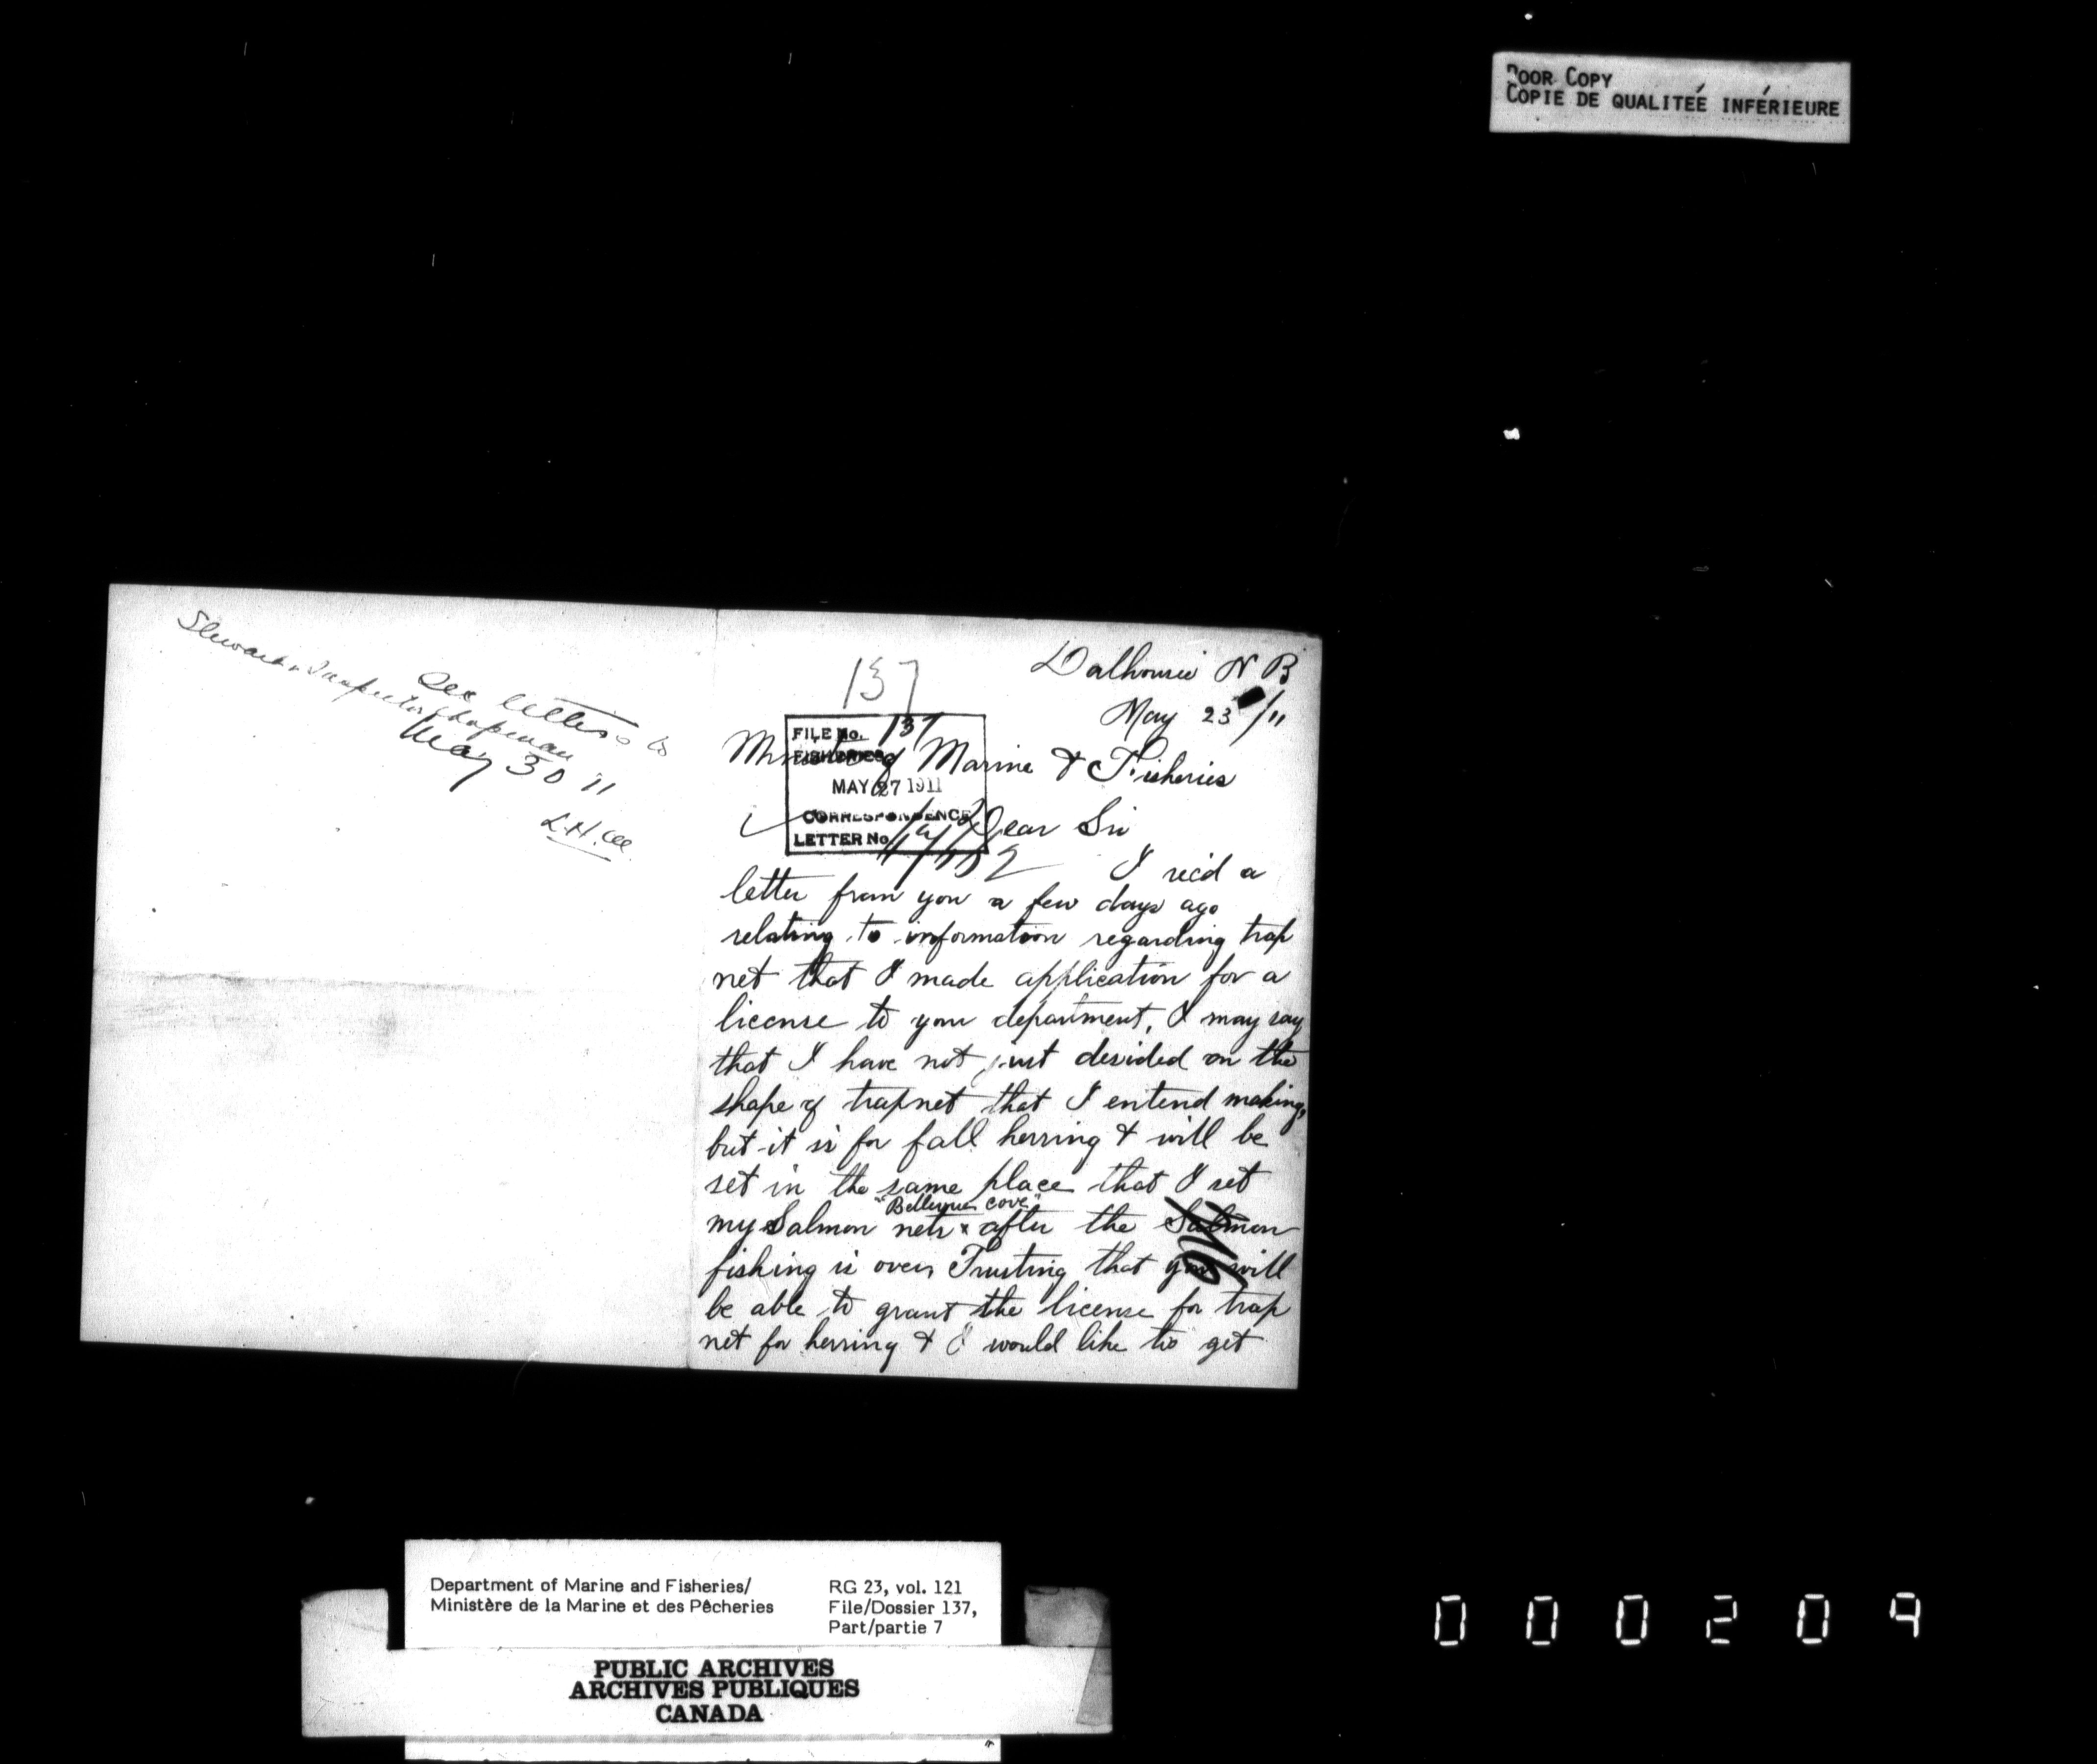 POOR COPY
COPIE DE QUALITEÉ INFÉRIEURE
See letters to
Stewart & Inspector Chapman
May 30 11
137
Dalhousie N B
May 23 /11
FILE No. 137
FISHERIES
MAY 27 1911
CORRESPONDENCE
LETTER No.
Minister of Marine & Fisheries
Dear Sir
I rec'd a
letter from you a few days ago
relating to information regarding trap
net that I made application for a
license to your department, I may say
that I have not just desided on the
shape of trapnet that I entend making,
but it is for fall herring & will be
set in the same place that I set
"Bellevue cove"
my Salmon nets x after the Salmon
fishing is over, Trusting that you will
be able to grant the license for trap
net for herring & I would like to get
Department of Marine and Fisheries/
Ministère de la Marine et des Pêcheries
RG 23, vol. 121
File/Dossier 137,
Part/partie 7
PUBLIC ARCHIVES
ARCHIVES PUBLIQUES
CANADA
000209